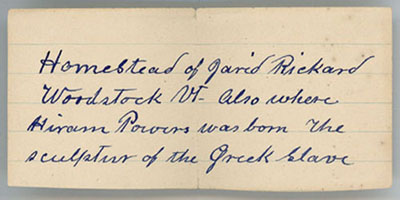 Homestead of David Rickard
Woodstock Vt- Also where
Hiram Powers was born The
sculptur of the Greek Slave